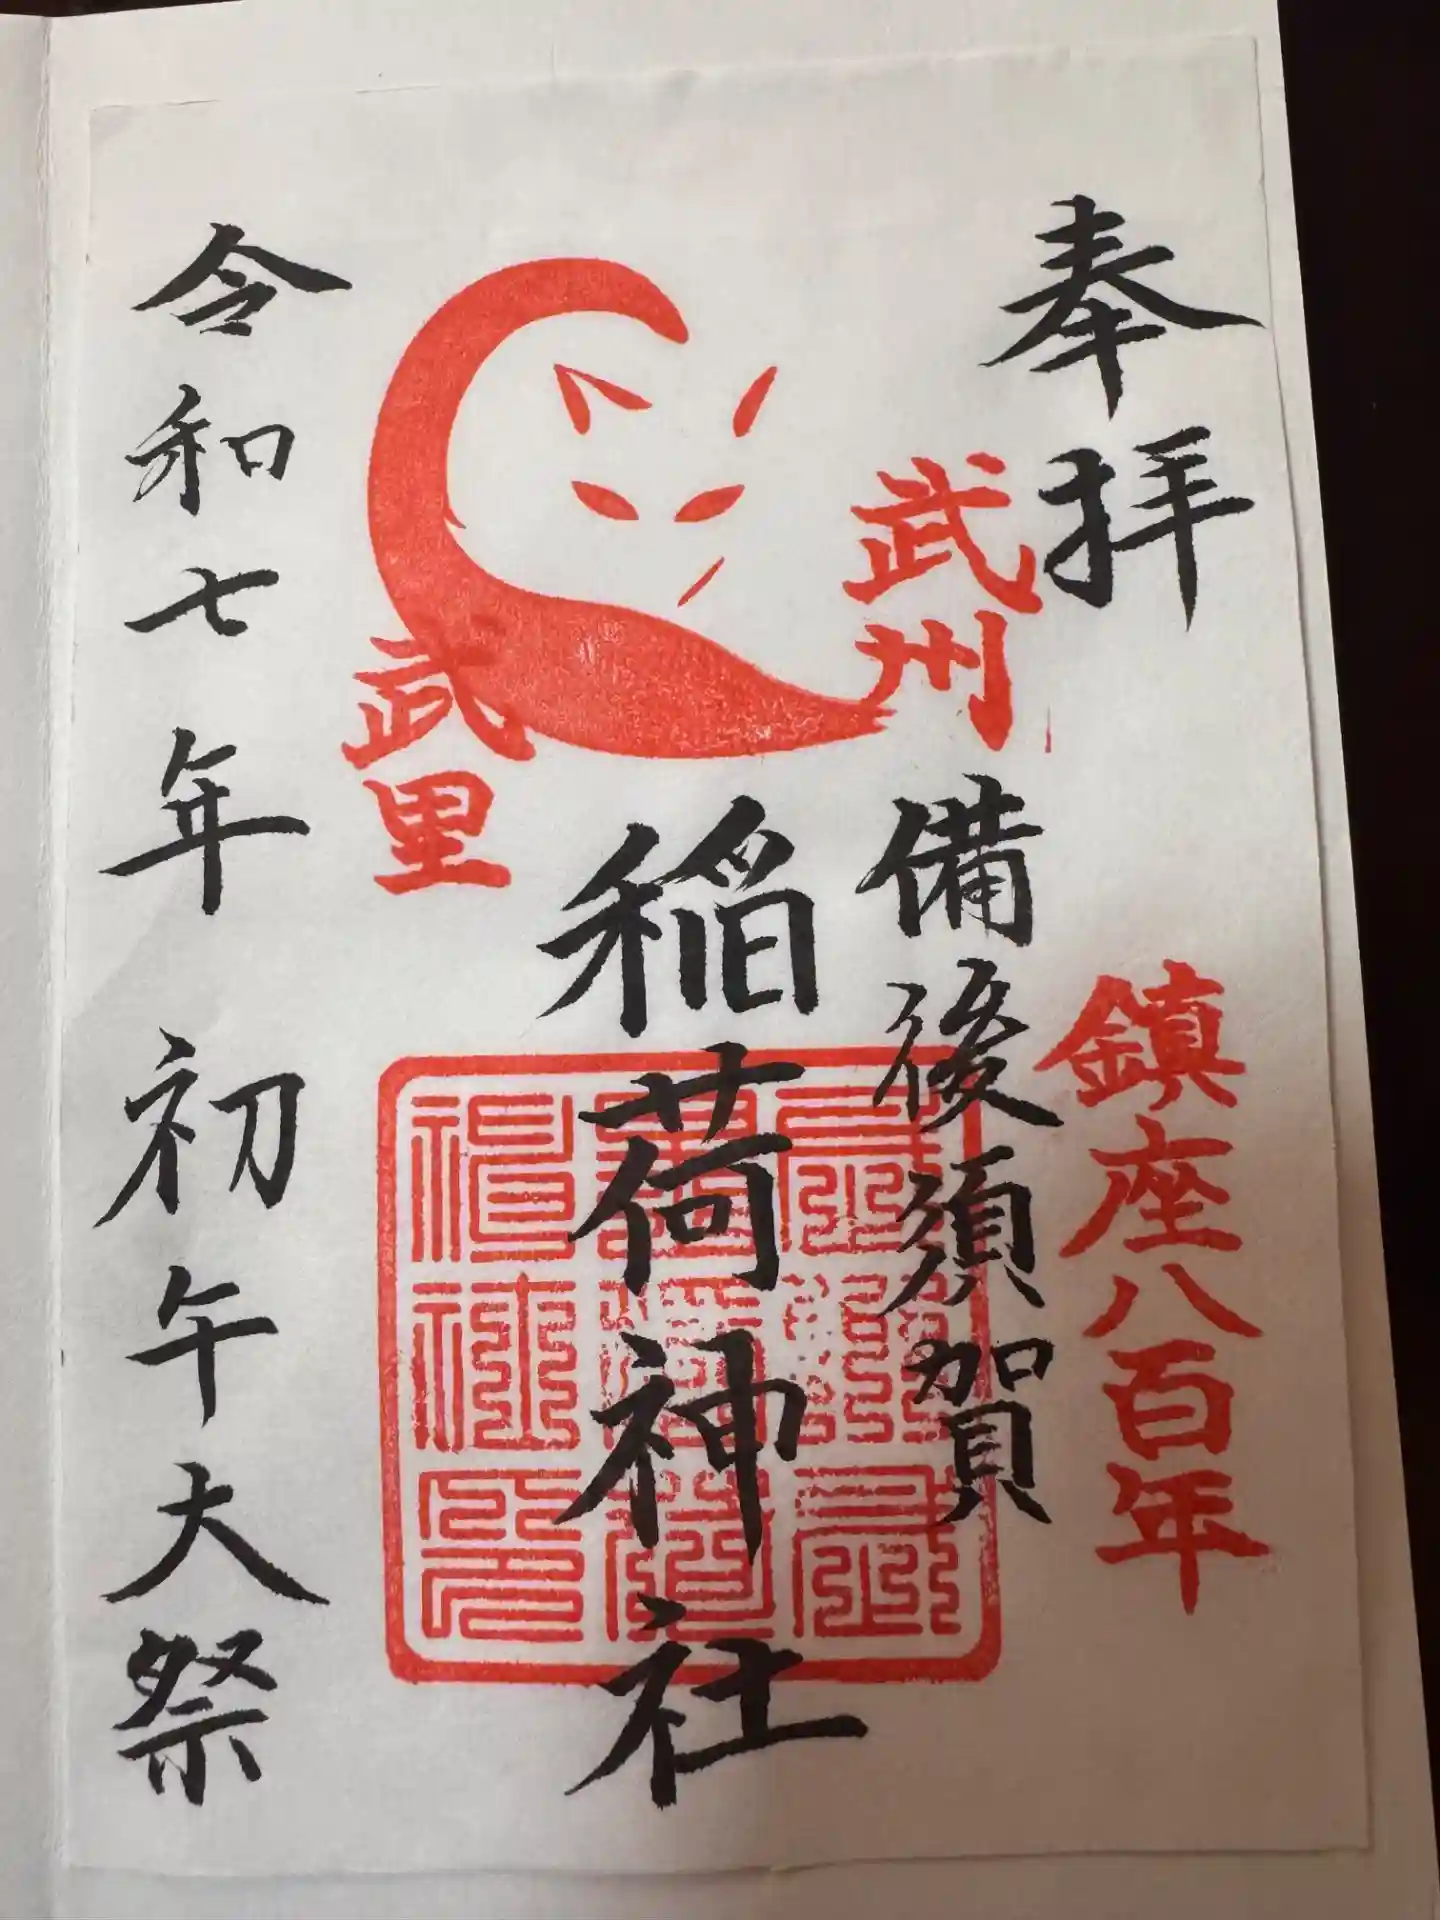 奉拝
武州
鎮座八百年
備後須賀
稲荷神社
武里
令和七年初午大祭